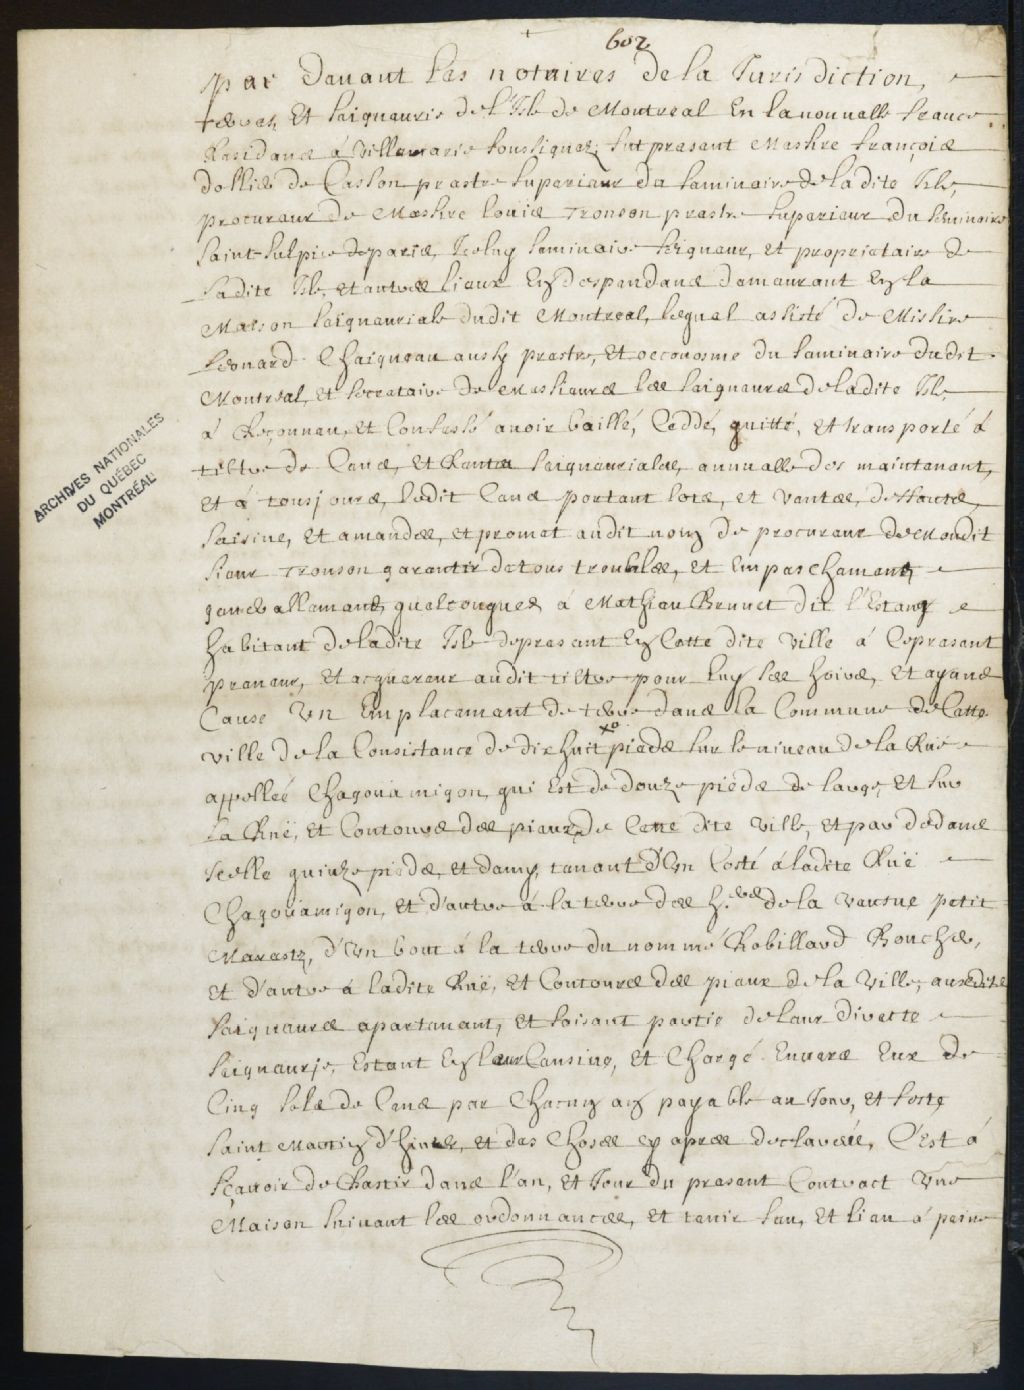 602
Par Devant Les notaires De la Jurisdiction,
terres, Et Seigneurie de l'Isle de Montreal En la nouvelle France
Residans á Villemarie soussignez, fut present Messire François
Dollier de Casson prestre superieur du seminaire de la dite Isle,
procureur de Messire Louis Tronson prestre superieur du seminaire
Saint Sulpice de paris, Iceluy seminaire seigneur, et proprietaire de
Ladite Isle, et autres lieux En Despendans demeurant En la
Maison seigneuriale dudit Montreal, lequel assisté de Missire
Leonard Chaigneau aussy prestre, Et oeconosme du seminaire dudit
Montreal, Et secretaire de Messieurs les seigneurs de ladite Isle,
á Reconneu, et Confessé avoir baillé, Ceddé, quitté, et transporté á
tiltre de Cens, Et Rente seigneuriales, annuelle des maintenant,
Et á tousjours, ledit Cens portant lots, et ventes, deffauts,
saisine, Et amandes, et promet audit nom de procureur de Mondit
sieur Tronson garantir de tous troubles, et Empeschements
generallement quelconques á Mathieu Brunet dit l'Estang
habitant de ladite Isle de present En Cette dite ville á Ce present
preneur, Et acquereur audit tiltre pour luy ses hoirs, Et ayans
Cause Un Emplacement de terre dans la Commune de Cette
ville de la Consistance de dix huit pieds sur le niveau de la Ruë
appelleé Chagouamigon qui Est de douze pieds de large, Et sur
La Ruë, Et Contours des pieux de Cette dite ville, et par dedans
Icelle quinze pieds, et demy, tenant d'Un Costé á ladite Ruë
Chagouamigon, Et d'autre á la terre des h.ers de la vansue petit
Marastz, d'Un bout á la terre du nommé Robillard Boucher,
Et d'autre á ladite Ruë, Et Contours des pieux de la ville; ausdits
seigneurs apartenant, Et faisant partie de leur Directe
Seigneurie, Estant En leur Censive, et Chargé Envers Eux de
Cinq sols de Cens par Chacun an payable au Jour, Et feste
Saint Martin d'hiver, et des Choses cy apres declarées, C'est á
sçavoir de Bastir dans l'an, Et Jour du present Contract Une
Maison suivant les ordonnances, Et tenir feu, Et lieu á peine
ARCHIVES NATIONALES
DU QUÉBEC
MONTRÉAL